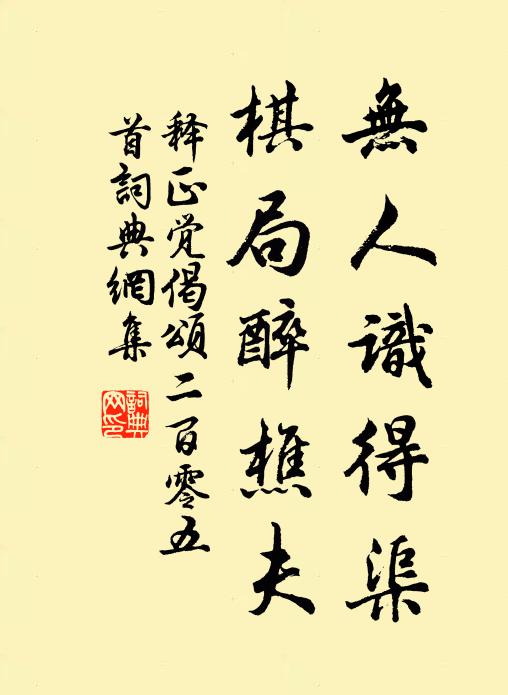 無人識得渠
棋局醉樵夫
释正觉偈頌二百零五
首詞典網集
詞典网印